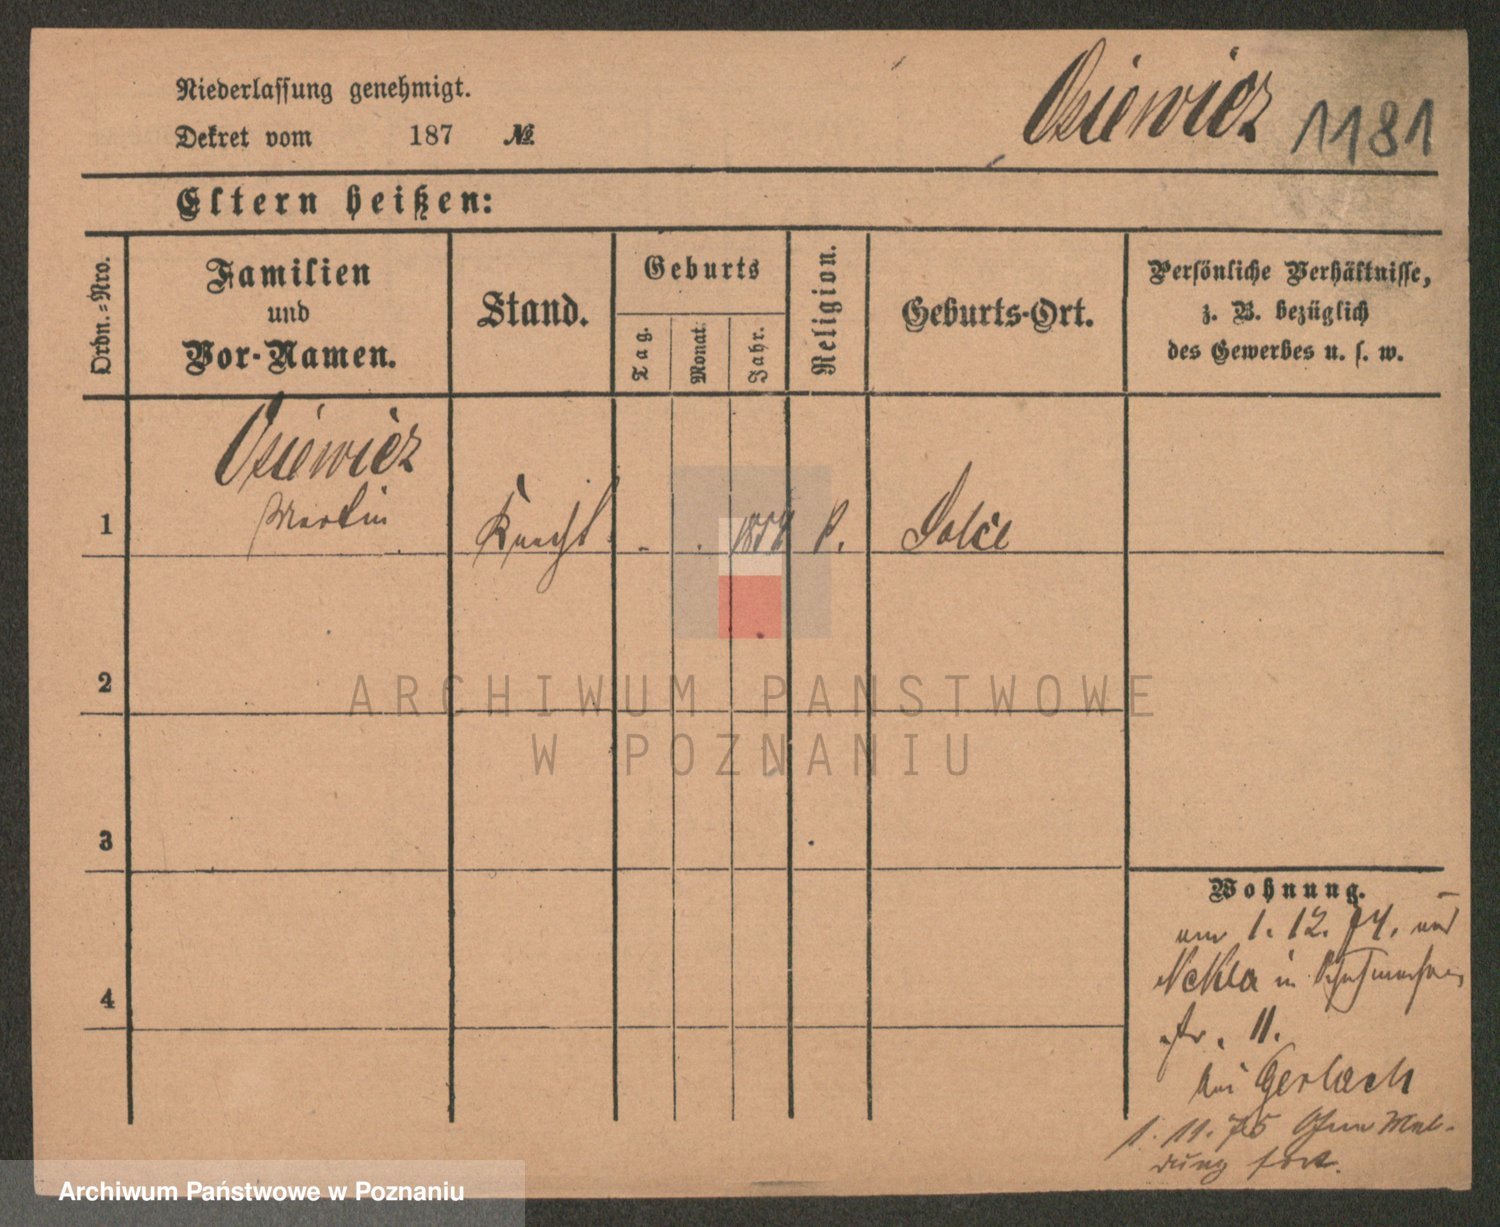 Niederlassung genehmigt.
Dekret vom 187 №
Osiewicz 1181
Eltern heißen:
Ordn.-Nro.
Familien
und
Vor-Namen.
Stand.
Geburts
Tag.
Monat
Jahr.
Religion.
Geburts-Ort.
Persönliche Verhältnisse,
z. B. bezüglich
des Gewerbes u. s. w.
Osiewicz
Martin
1
Knecht
2
3
4
Wohnung.
1. 12. 74.
Nekla in
str. 11.
bei Gerlach
1. 11. 75 Ohne Mel-
dung fort.
ARCHIWUM PAŃSTWOWE
W POZNANIU
Archiwum Państwowe w Poznaniu